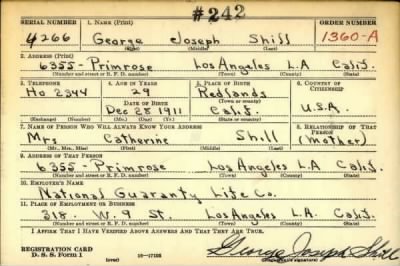 #242
SERIAL NUMBER 1. NAME (Print) ORDER NUMBER
4266 George Joseph Shill 1360-A
(First) (Middle) (Last)
2. ADDRESS (Print)
6355 - Primrose Los Angeles L.A Calif.
(Number and street or R. F. D. number) (Town) (County) (State)
3. TELEPHONE 4. AGE IN YEARS 5. PLACE OF BIRTH 6. COUNTRY OF CITIZENSHIP
Ho 2344 29 Redlands
DATE OF BIRTH (Town or county)
Dec 28 1911 Calif. U.S.A.
(Exchange) (Number) (Mo.) (Day) (Yr.) (State or country)
7. NAME OF PERSON WHO WILL ALWAYS KNOW YOUR ADDRESS 8. RELATIONSHIP OF THAT PERSON
Mrs Catherine Shill (mother)
(Mr., Mrs., Miss) (First) (Middle) (Last)
9. ADDRESS OF THAT PERSON
6355 - Primrose Los Angeles L.A Calif.
(Number and street or R. F. D. number) (Town) (County) (State)
10. EMPLOYER'S NAME
National Guaranty Life Co.
11. PLACE OF EMPLOYMENT OR BUSINESS
318. W. 9 St. Los Angeles L.A. Calif.
(Number and street or R. F. D. number) (Town) (County) (State)
I AFFIRM THAT I HAVE VERIFIED ABOVE ANSWERS AND THAT THEY ARE TRUE.
REGISTRATION CARD
D. S. S. Form 1 (over) 16—17105 George Joseph Shill
(Registrant's signature)